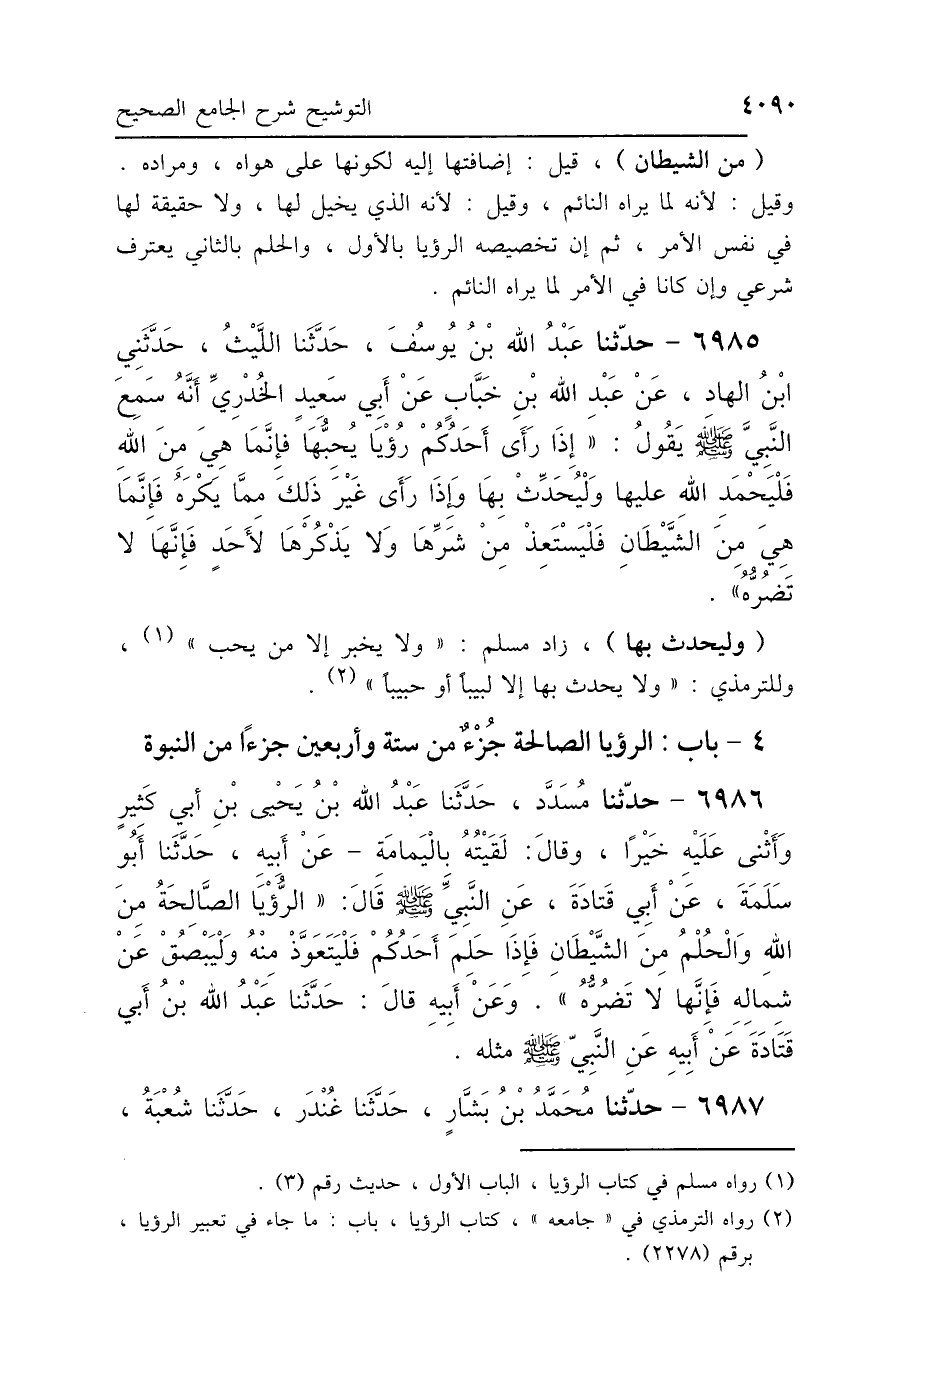 ٤٠٩٠ التوشيح شرح الجامع الصحيح
( من الشيطان ) ، قيل : إضافتها إليه لكونها على هواه ، ومراده .
وقيل : لأنه لما يراه النائم ، وقيل : لأنه الذي يخيل لها ، ولا حقيقة لها
في نفس الأمر ، ثم إن تخصيصه الرؤيا بالأول ، والحلم بالثاني يعترف
شرعي وإن كانا في الأمر لما يراه النائم .
٦٩٨٥ - حدّثنا عَبْدُ الله بْنُ يُوسُفَ ، حَدَّثَنَا اللَّيْثُ ، حَدَّثَنِي
ابْنُ الهادِ ، عَنْ عَبْدِ الله بْنِ خَبَّابٍ عَنْ أبي سَعِيدٍ الخُدْرِيِّ أَنَّهُ سَمِعَ
النَّبِيَّ ﷺ يَقُولُ : « إِذَا رَأَى أَحَدُكُمْ رُؤْيَا يُحِبُّهَا فإِنَّمَا هِيَ مِنَ الله
فَلْيَحْمَدِ الله عليها وَلْيُحَدِّثْ بِهَا وَإِذَا رَأى غَيْرَ ذَلِكَ مِمَّا يَكْرَهُ فَإِنَّمَا
هِيَ مِنَ الشَّيْطَانِ فَلْيَسْتَعِذْ مِنْ شَرِّهَا وَلا يَذْكُرْهَا لأَحَدٍ فَإِنَّهَا لا
تَضُرُّهُ» .
( وليحدث بها ) ، زاد مسلم : « ولا يخبر إلا من يحب » (١) ،
وللترمذي : « ولا يحدث بها إلا لبيباً أو حبيباً » (٢) .
٤ - باب : الرؤيا الصالحة جُزْءٌ من ستة وأربعين جزءًا من النبوة
٦٩٨٦ - حدّثنا مُسَدَّد ، حَدَّثَنَا عَبدُ الله بْنُ يَحْيى بْنِ أبي كَثِيرٍ
وَأَثْنى عَلَيْهِ خَيْرًا ، وقالَ: لَقِيْتُهُ بِالْيَمامَةِ - عَنْ أَبيهِ ، حَدَّثَنا أَبُو
سَلَمَةَ ، عَنْ أَبي قَتادَةَ ، عَنِ النَّبيِّ ﷺ قَالَ: « الرُّؤْيَا الصَّالحَةُ مِنَ
الله وَالْحُلْمُ مِنَ الشَّيْطَانِ فَإِذَا حَلَمَ أَحَدُكُمْ فَلْيَتَعَوَّذْ مِنْهُ وَلْيَبصُقْ عَنْ
شمالِهِ فَإِنَّها لا تَضُرُّهُ » . وَعَنْ أَبِيهِ قالَ : حَدَّثَنا عَبْدُ الله بْنُ أَبي
قَتَادَةَ عَنْ أَبِيهِ عَنِ النَّبيِّ ﷺ مثله .
٦٩٨٧ - حدّثنا مُحَمَّدُ بْنُ بَشَّارٍ ، حَدَّثَنا غُنْدَر ، حَدَّثَنا شُعْبَةُ ،
(١) رواه مسلم في كتاب الرؤيا ، الباب الأول ، حديث رقم (٣) .
(٢) رواه الترمذي في « جامعه » ، كتاب الرؤيا ، باب : ما جاء في تعبير الرؤيا ،
برقم (٢٢٧٨) .